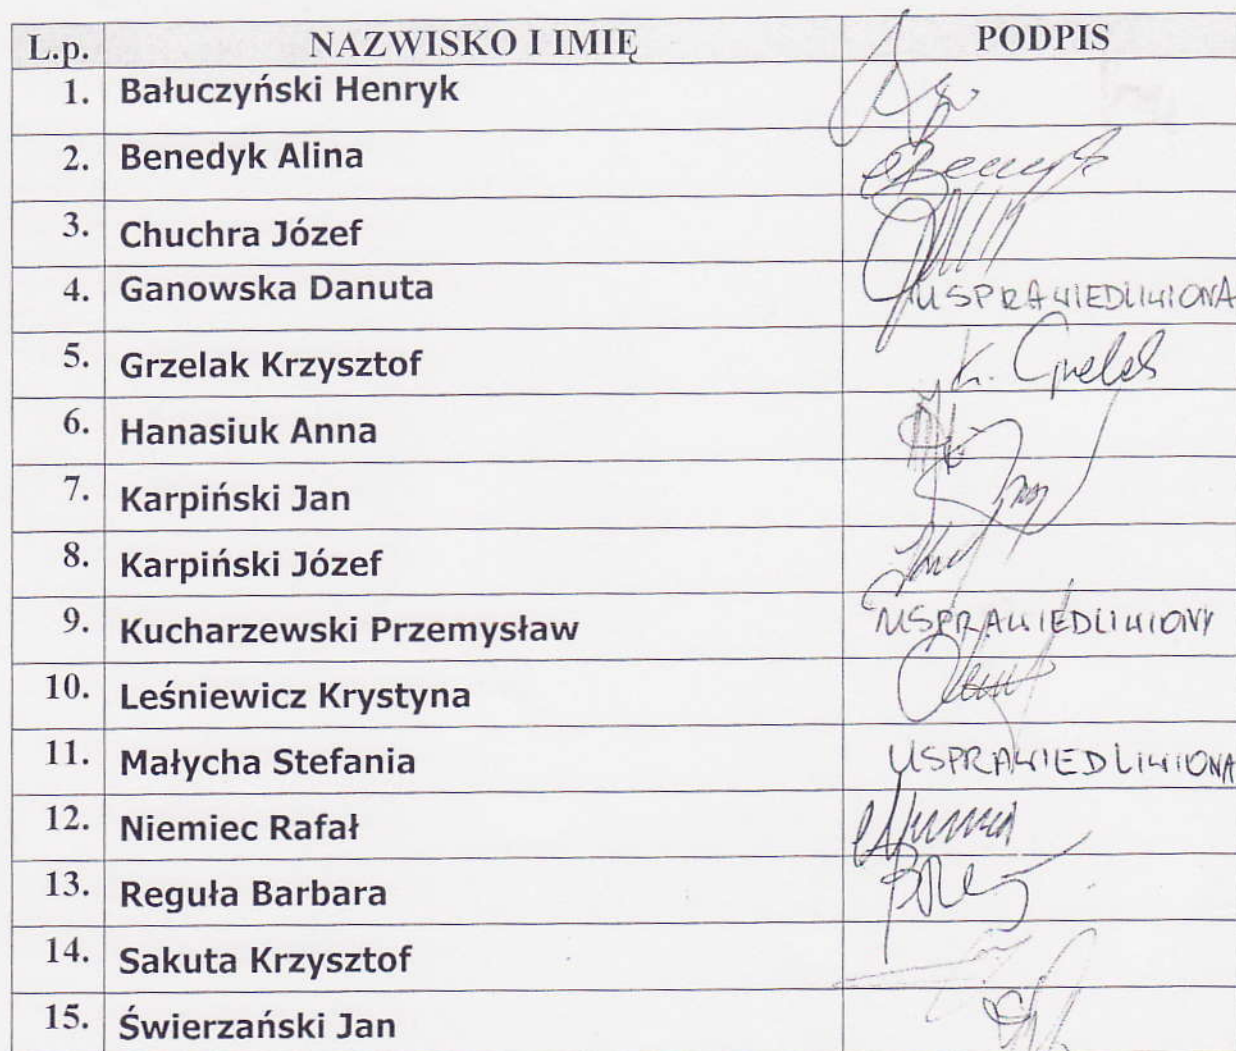 L.p. NAZWISKO I IMIĘ PODPIS
1. Bałuczyński Henryk
2. Benedyk Alina
3. Chuchra Józef
4. Ganowska Danuta USPRAWIEDLIWIONA
5. Grzelak Krzysztof K. Grzelak
6. Hanasiuk Anna
7. Karpiński Jan
8. Karpiński Józef
9. Kucharzewski Przemysław USPRAWIEDLIWIONY
10. Leśniewicz Krystyna
11. Małycha Stefania USPRAWIEDLIWIONA
12. Niemiec Rafał
13. Reguła Barbara
14. Sakuta Krzysztof
15. Świerzański Jan